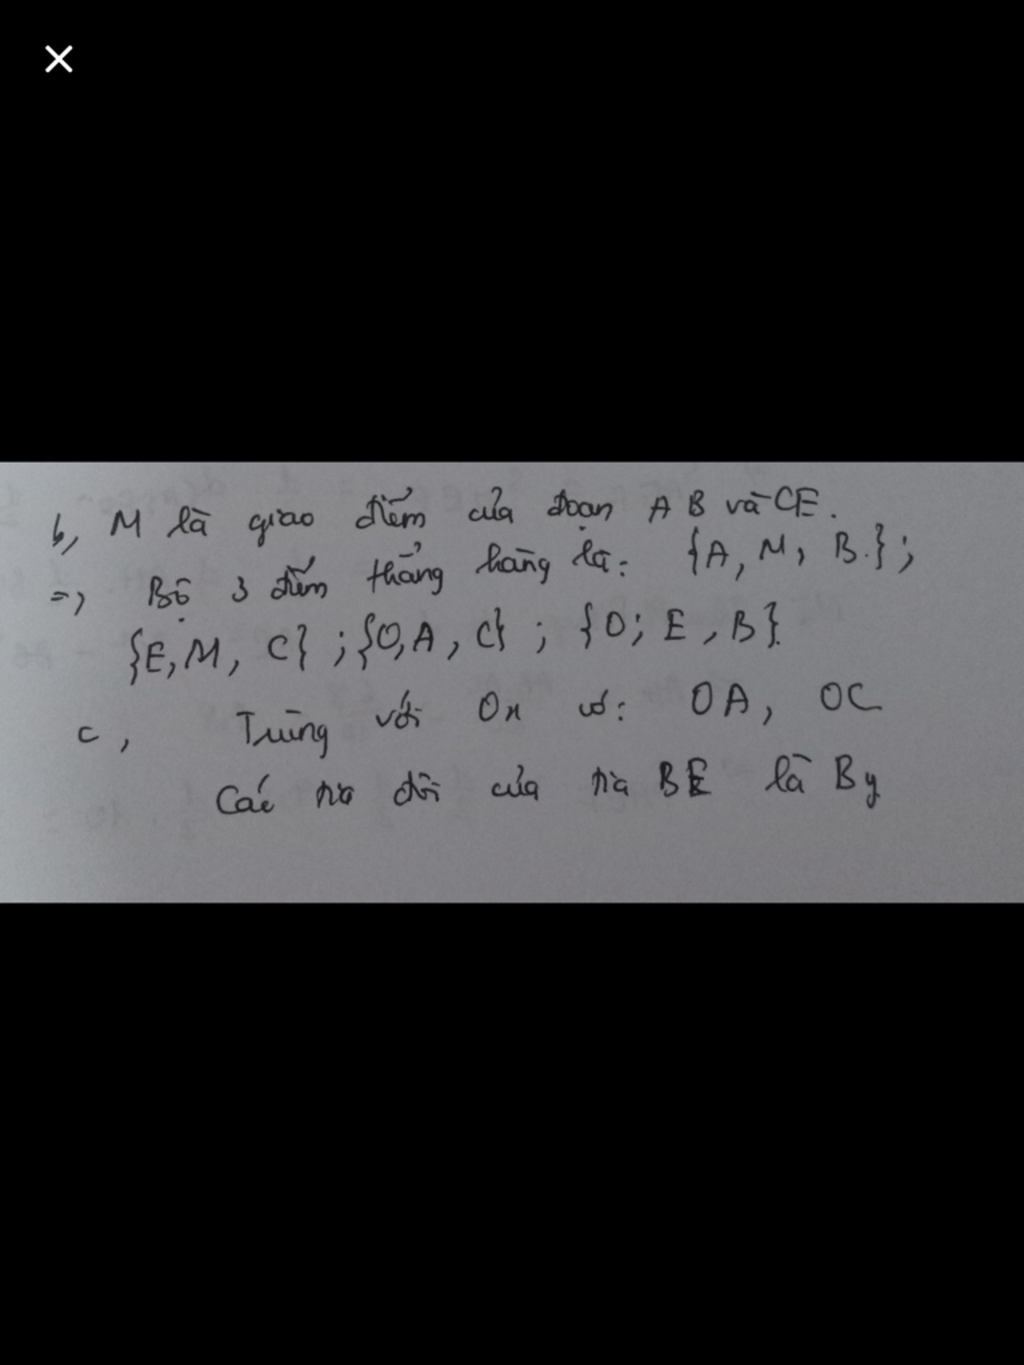 b, M là giao điểm của đoạn AB và CE.
=> Bộ 3 điểm thẳng hàng là: {A, M, B.};
{E, M, C}; {O, A, C}; {O; E, B}.
c, Trùng với Ox có: OA, OC
Các tia đối của tia BE là By